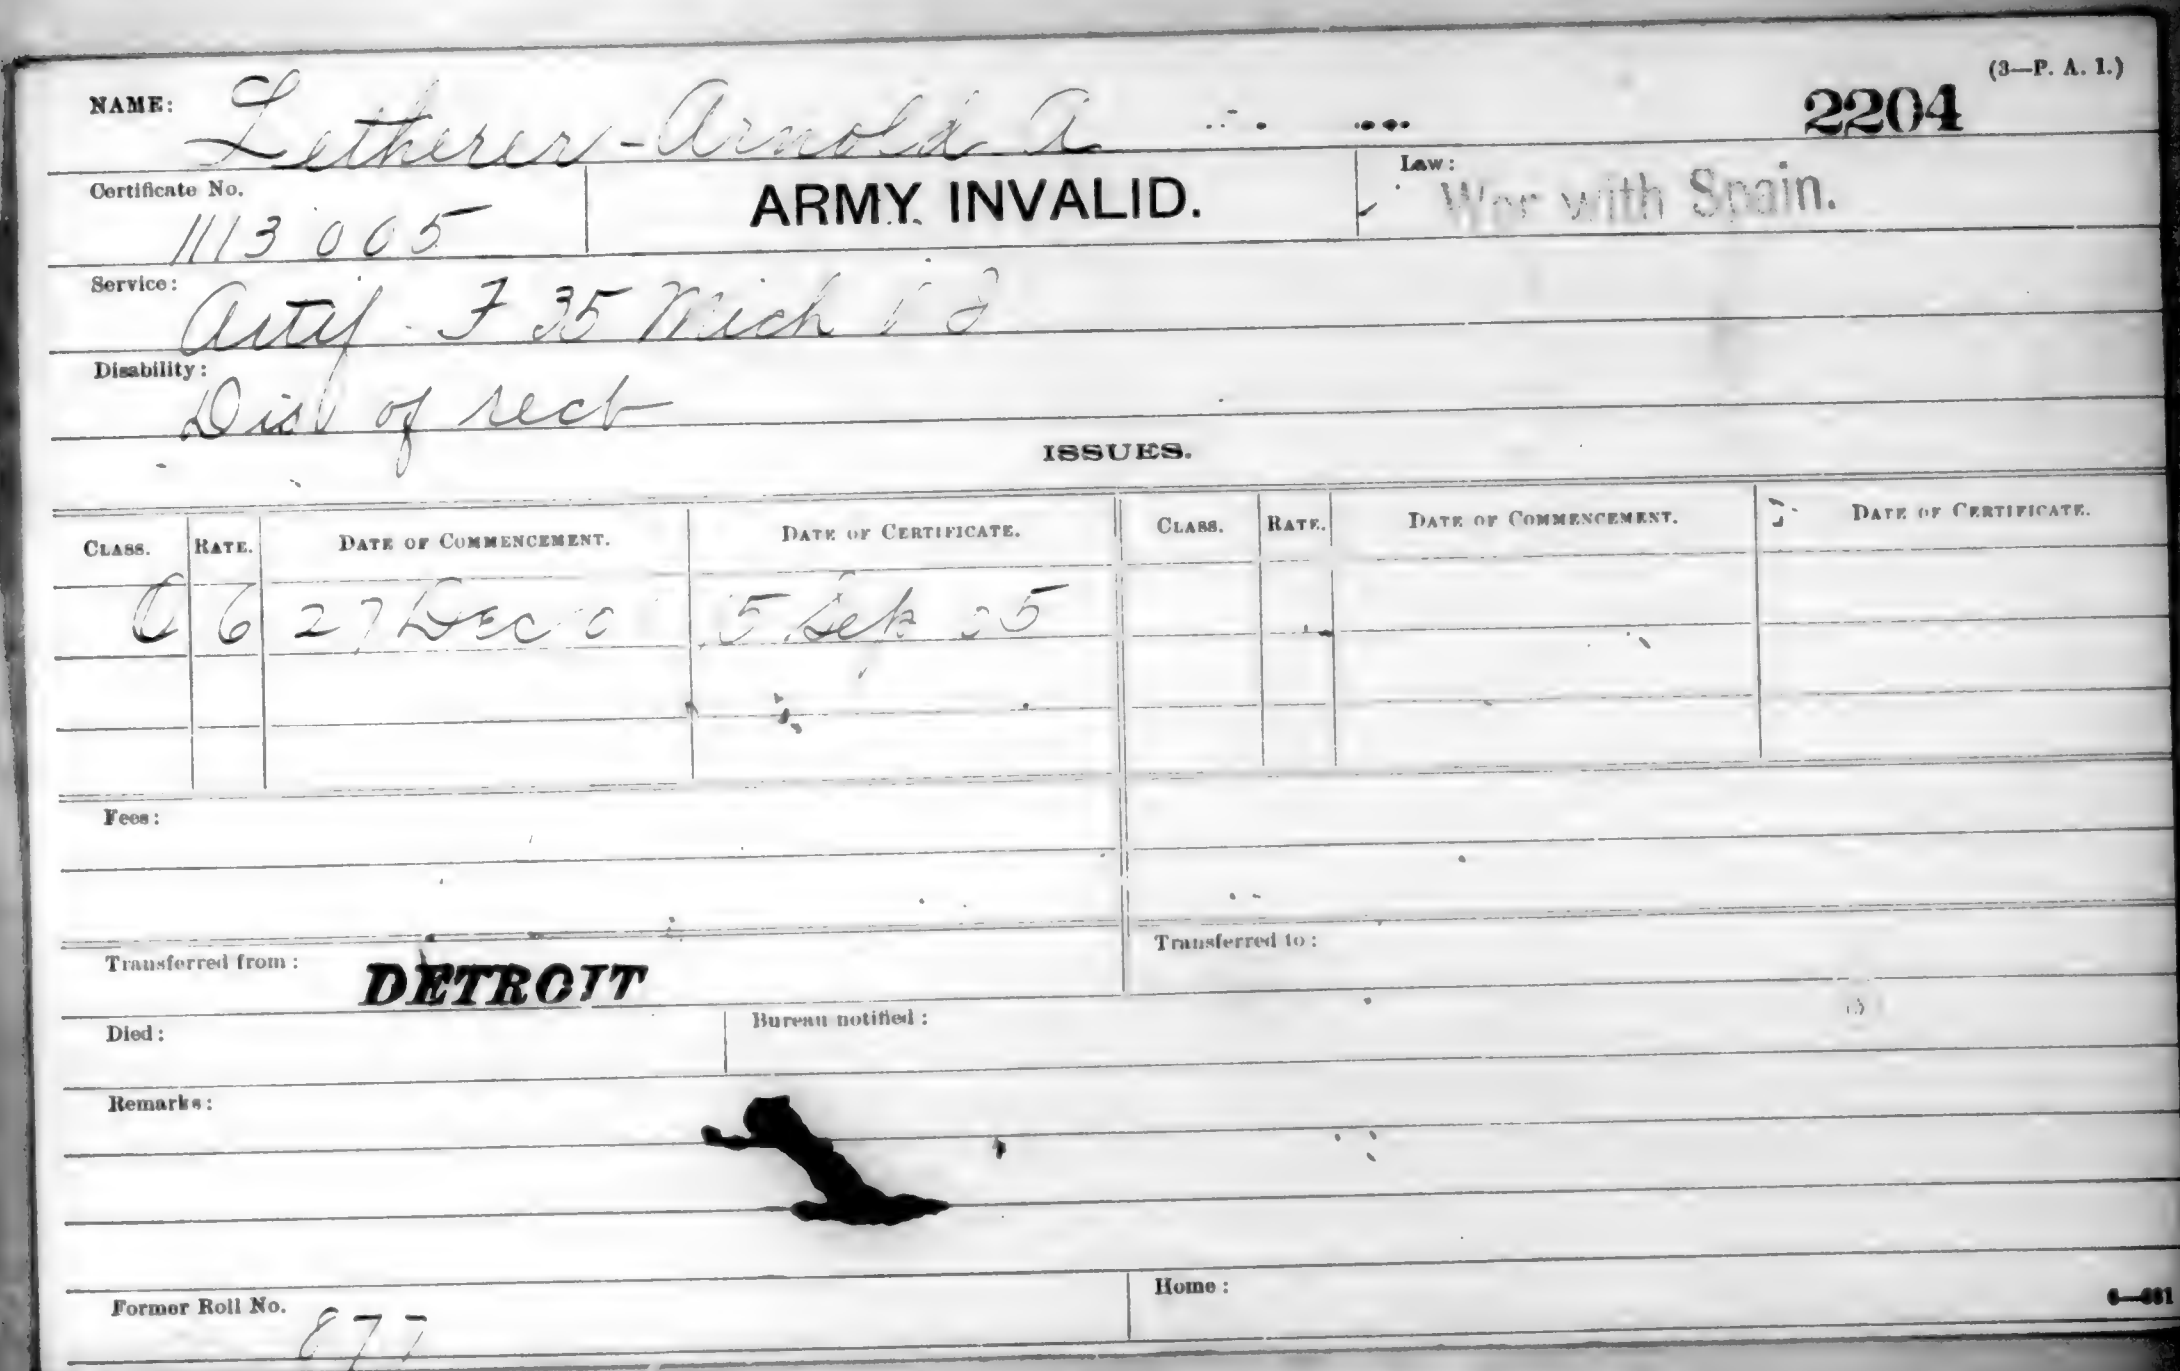 (3—P. A. I.)
NAME: Letherer - Arnold A 2204
Certificate No. 1113 005 ARMY INVALID. Law: War with Spain.
Service: Artif. F 35 Mich
Disability: Dis of rect
ISSUES.
CLASS. RATE. DATE OF COMMENCEMENT. DATE OF CERTIFICATE. CLASS. RATE. DATE OF COMMENCEMENT. DATE OF CERTIFICATE.
6 27 Dec 5 Sep 05
Fees:
Transferred from: DETROIT Transferred to:
Died: Bureau notified:
Remarks:
Former Roll No. 877 Home: